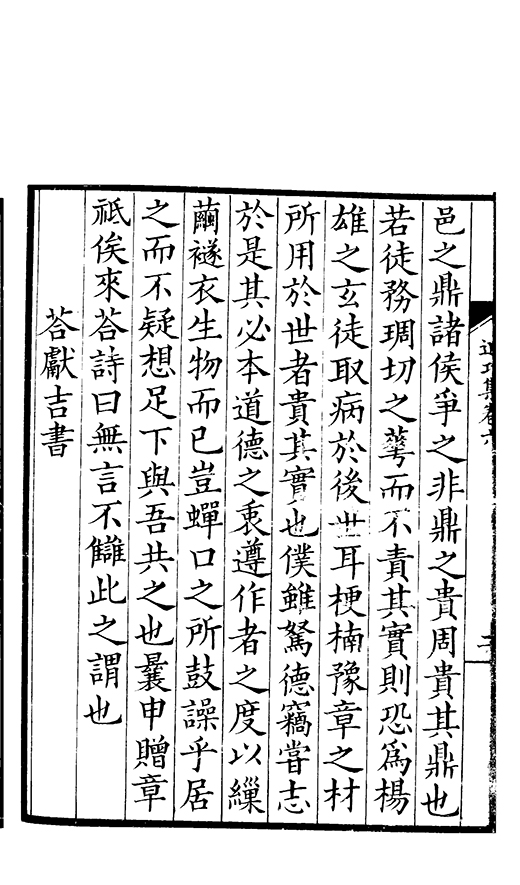 迪功集卷六
二
邑之鼎諸侯爭之非鼎之貴周貴其鼎也
若徒務琱切之蕚而不責其實則恐爲楊
雄之玄徒取病於後世耳梗楠豫章之材
所用於世者貴其實也僕雖駑德竊嘗志
於是其必本道德之衷遵作者之度以繅
繭襚衣生物而已豈蟬口之所鼓譟乎居
之而不疑想足下與吾共之也曩申贈章
祗俟來荅詩曰無言不讎此之謂也
荅獻吉書